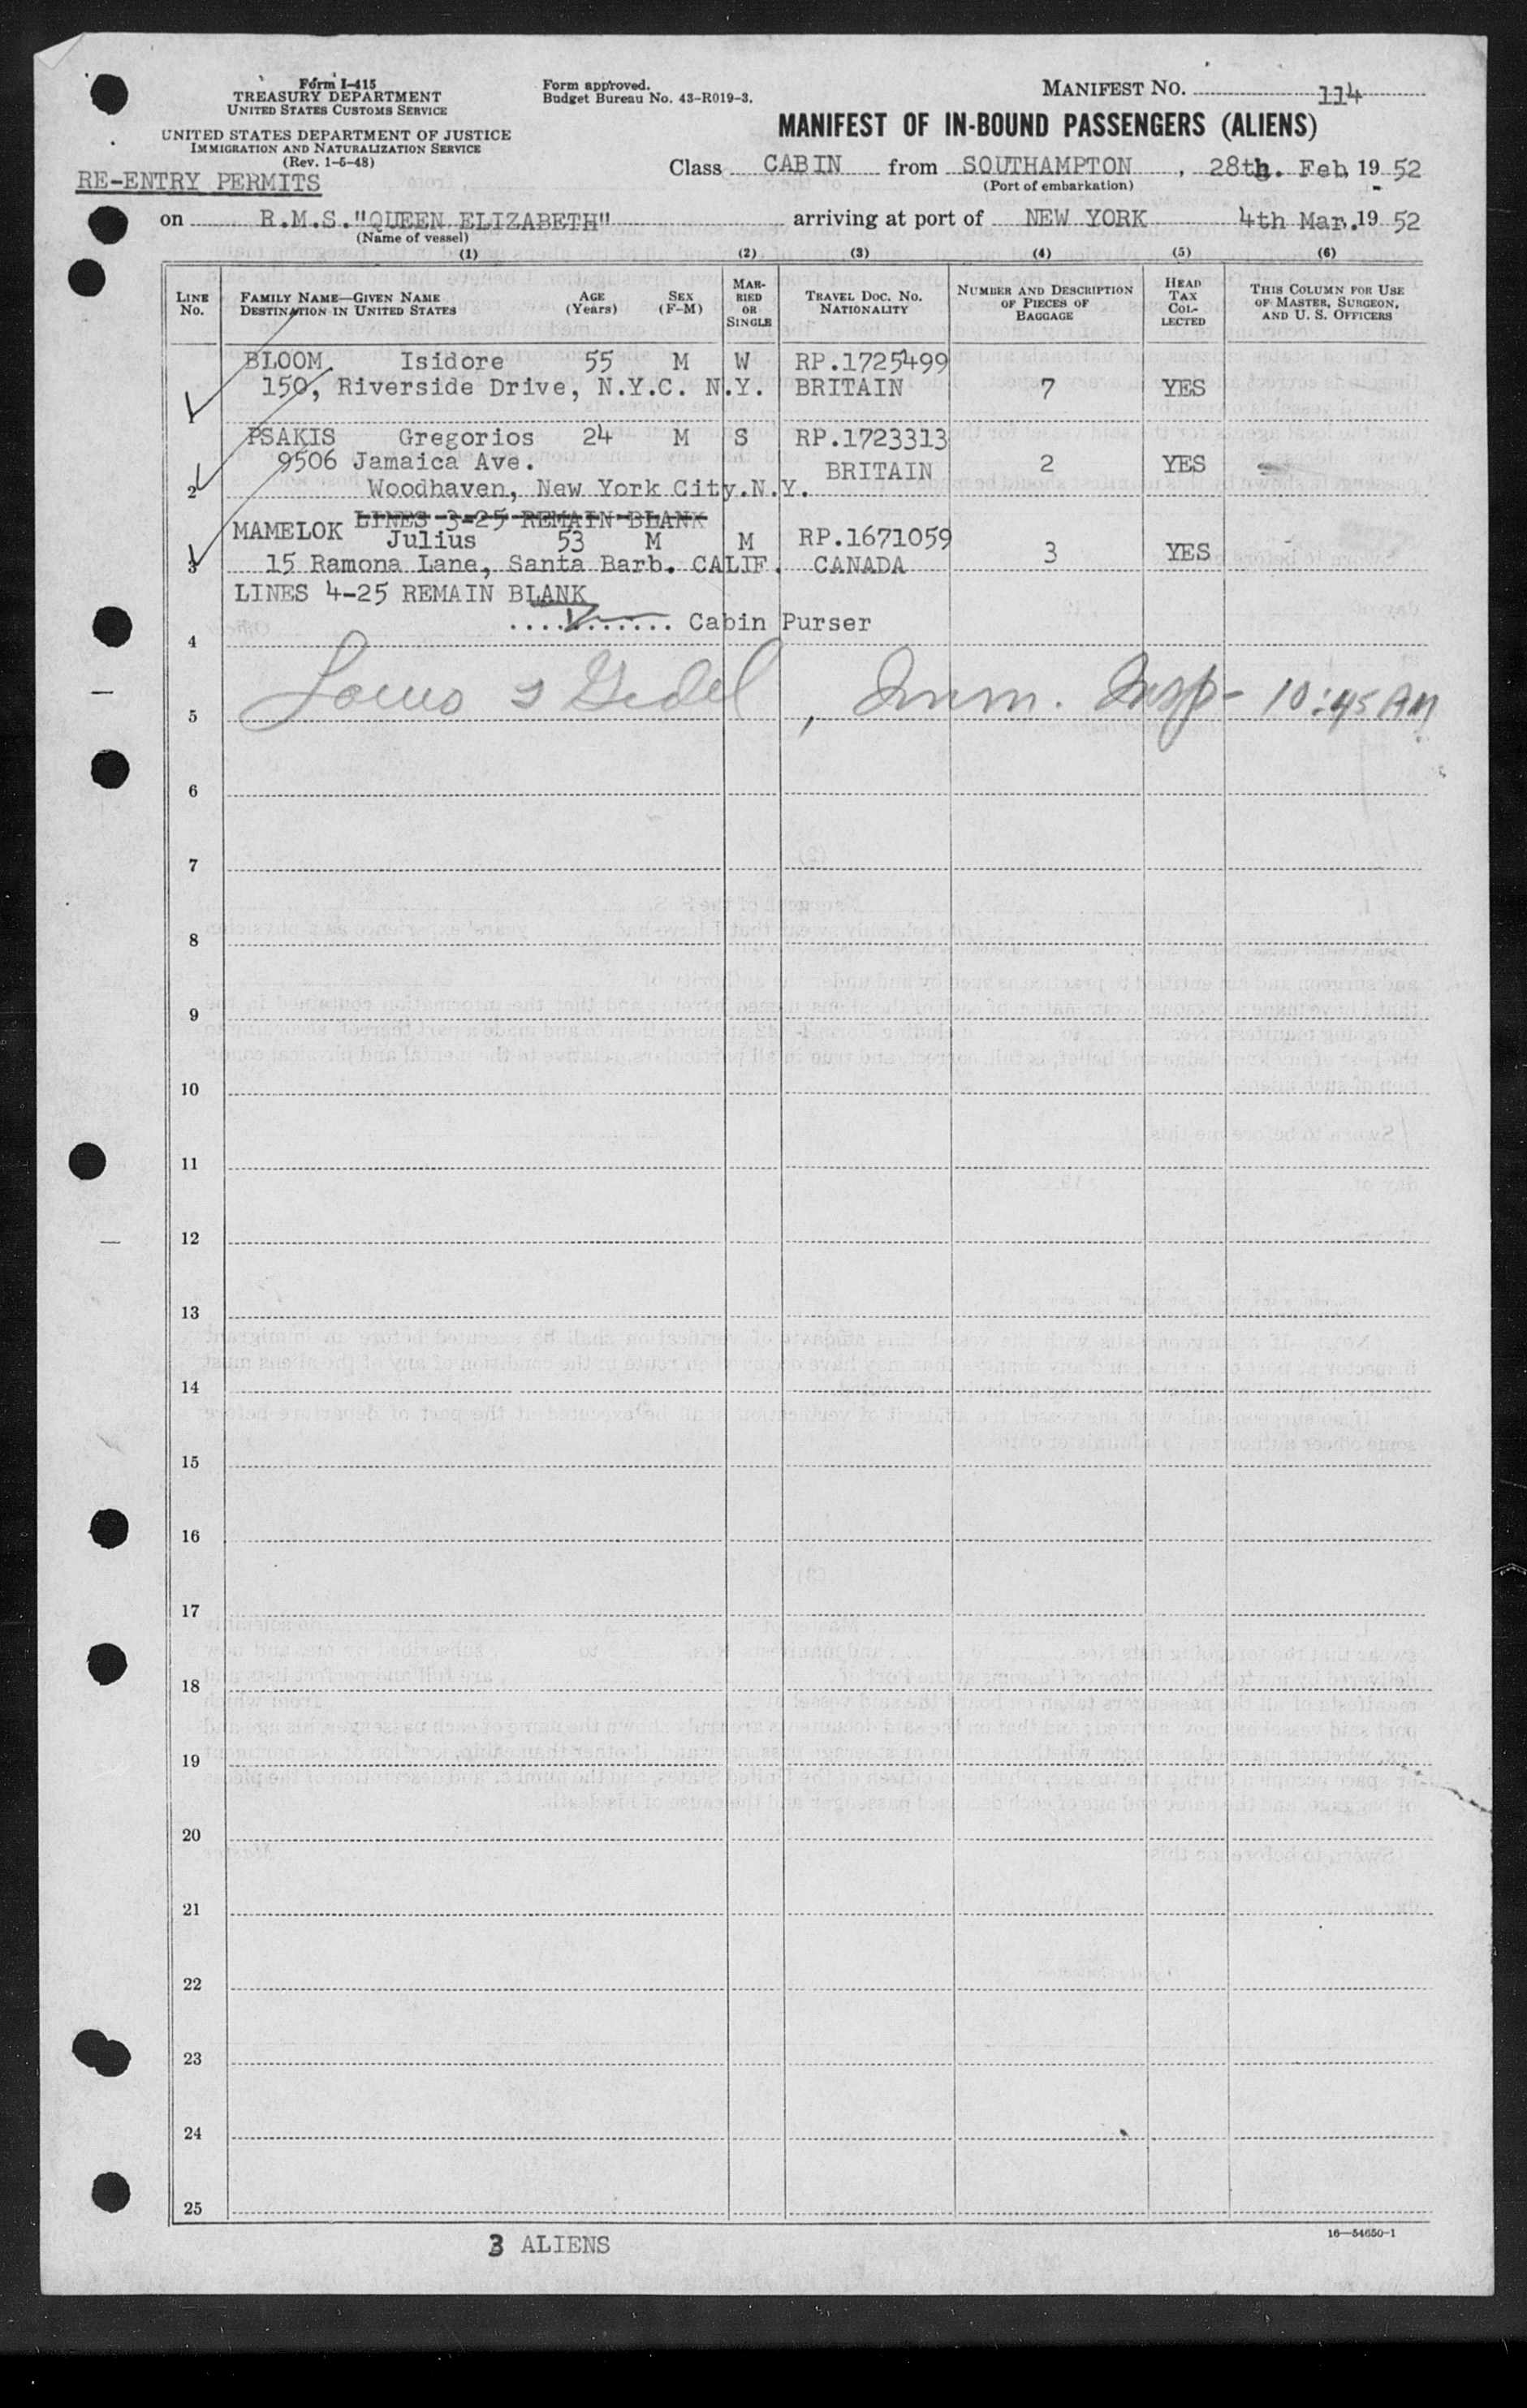 Form I-415
TREASURY DEPARTMENT
UNITED STATES CUSTOMS SERVICE
UNITED STATES DEPARTMENT OF JUSTICE
IMMIGRATION AND NATURALIZATION SERVICE
(Rev. 1-5-48)
RE-ENTRY PERMITS
Form approved.
Budget Bureau No. 43-R019-3.
MANIFEST NO. 114
MANIFEST OF IN-BOUND PASSENGERS (ALIENS)
Class CABIN from SOUTHAMPTON, 28th. Feb, 19 52
(Port of embarkation)
on R.M.S."QUEEN ELIZABETH" arriving at port of NEW YORK 4th Mar. 19 52
(Name of vessel)
(1) (2) (3) (4) (5) (6)
LINE No.
FAMILY NAME—GIVEN NAME
DESTINATION IN UNITED STATES
AGE (Years)
SEX (F-M)
MARRIED OR SINGLE
TRAVEL DOC. NO. NATIONALITY
NUMBER AND DESCRIPTION OF PIECES OF BAGGAGE
HEAD TAX COLLECTED
THIS COLUMN FOR USE OF MASTER, SURGEON, AND U. S. OFFICERS
BLOOM Isidore 55 M W RP.1725499
150, Riverside Drive, N.Y.C. N.Y. BRITAIN 7 YES
1
PSAKIS Gregorios 24 M S RP.1723313
9506 Jamaica Ave. BRITAIN 2 YES
2 Woodhaven, New York City.N.Y.
LINES 3-25 REMAIN BLANK
MAMELOK Julius 53 M M RP.1671059
3 15 Ramona Lane, Santa Barb. CALIF. CANADA 3 YES
LINES 4-25 REMAIN BLANK
............ Cabin Purser
4
5 , Imm. Insp- 10:45 AM
6
7
8
9
10
11
12
13
14
15
16
17
18
19
20
21
22
23
24
25
3 ALIENS
16—54650-1